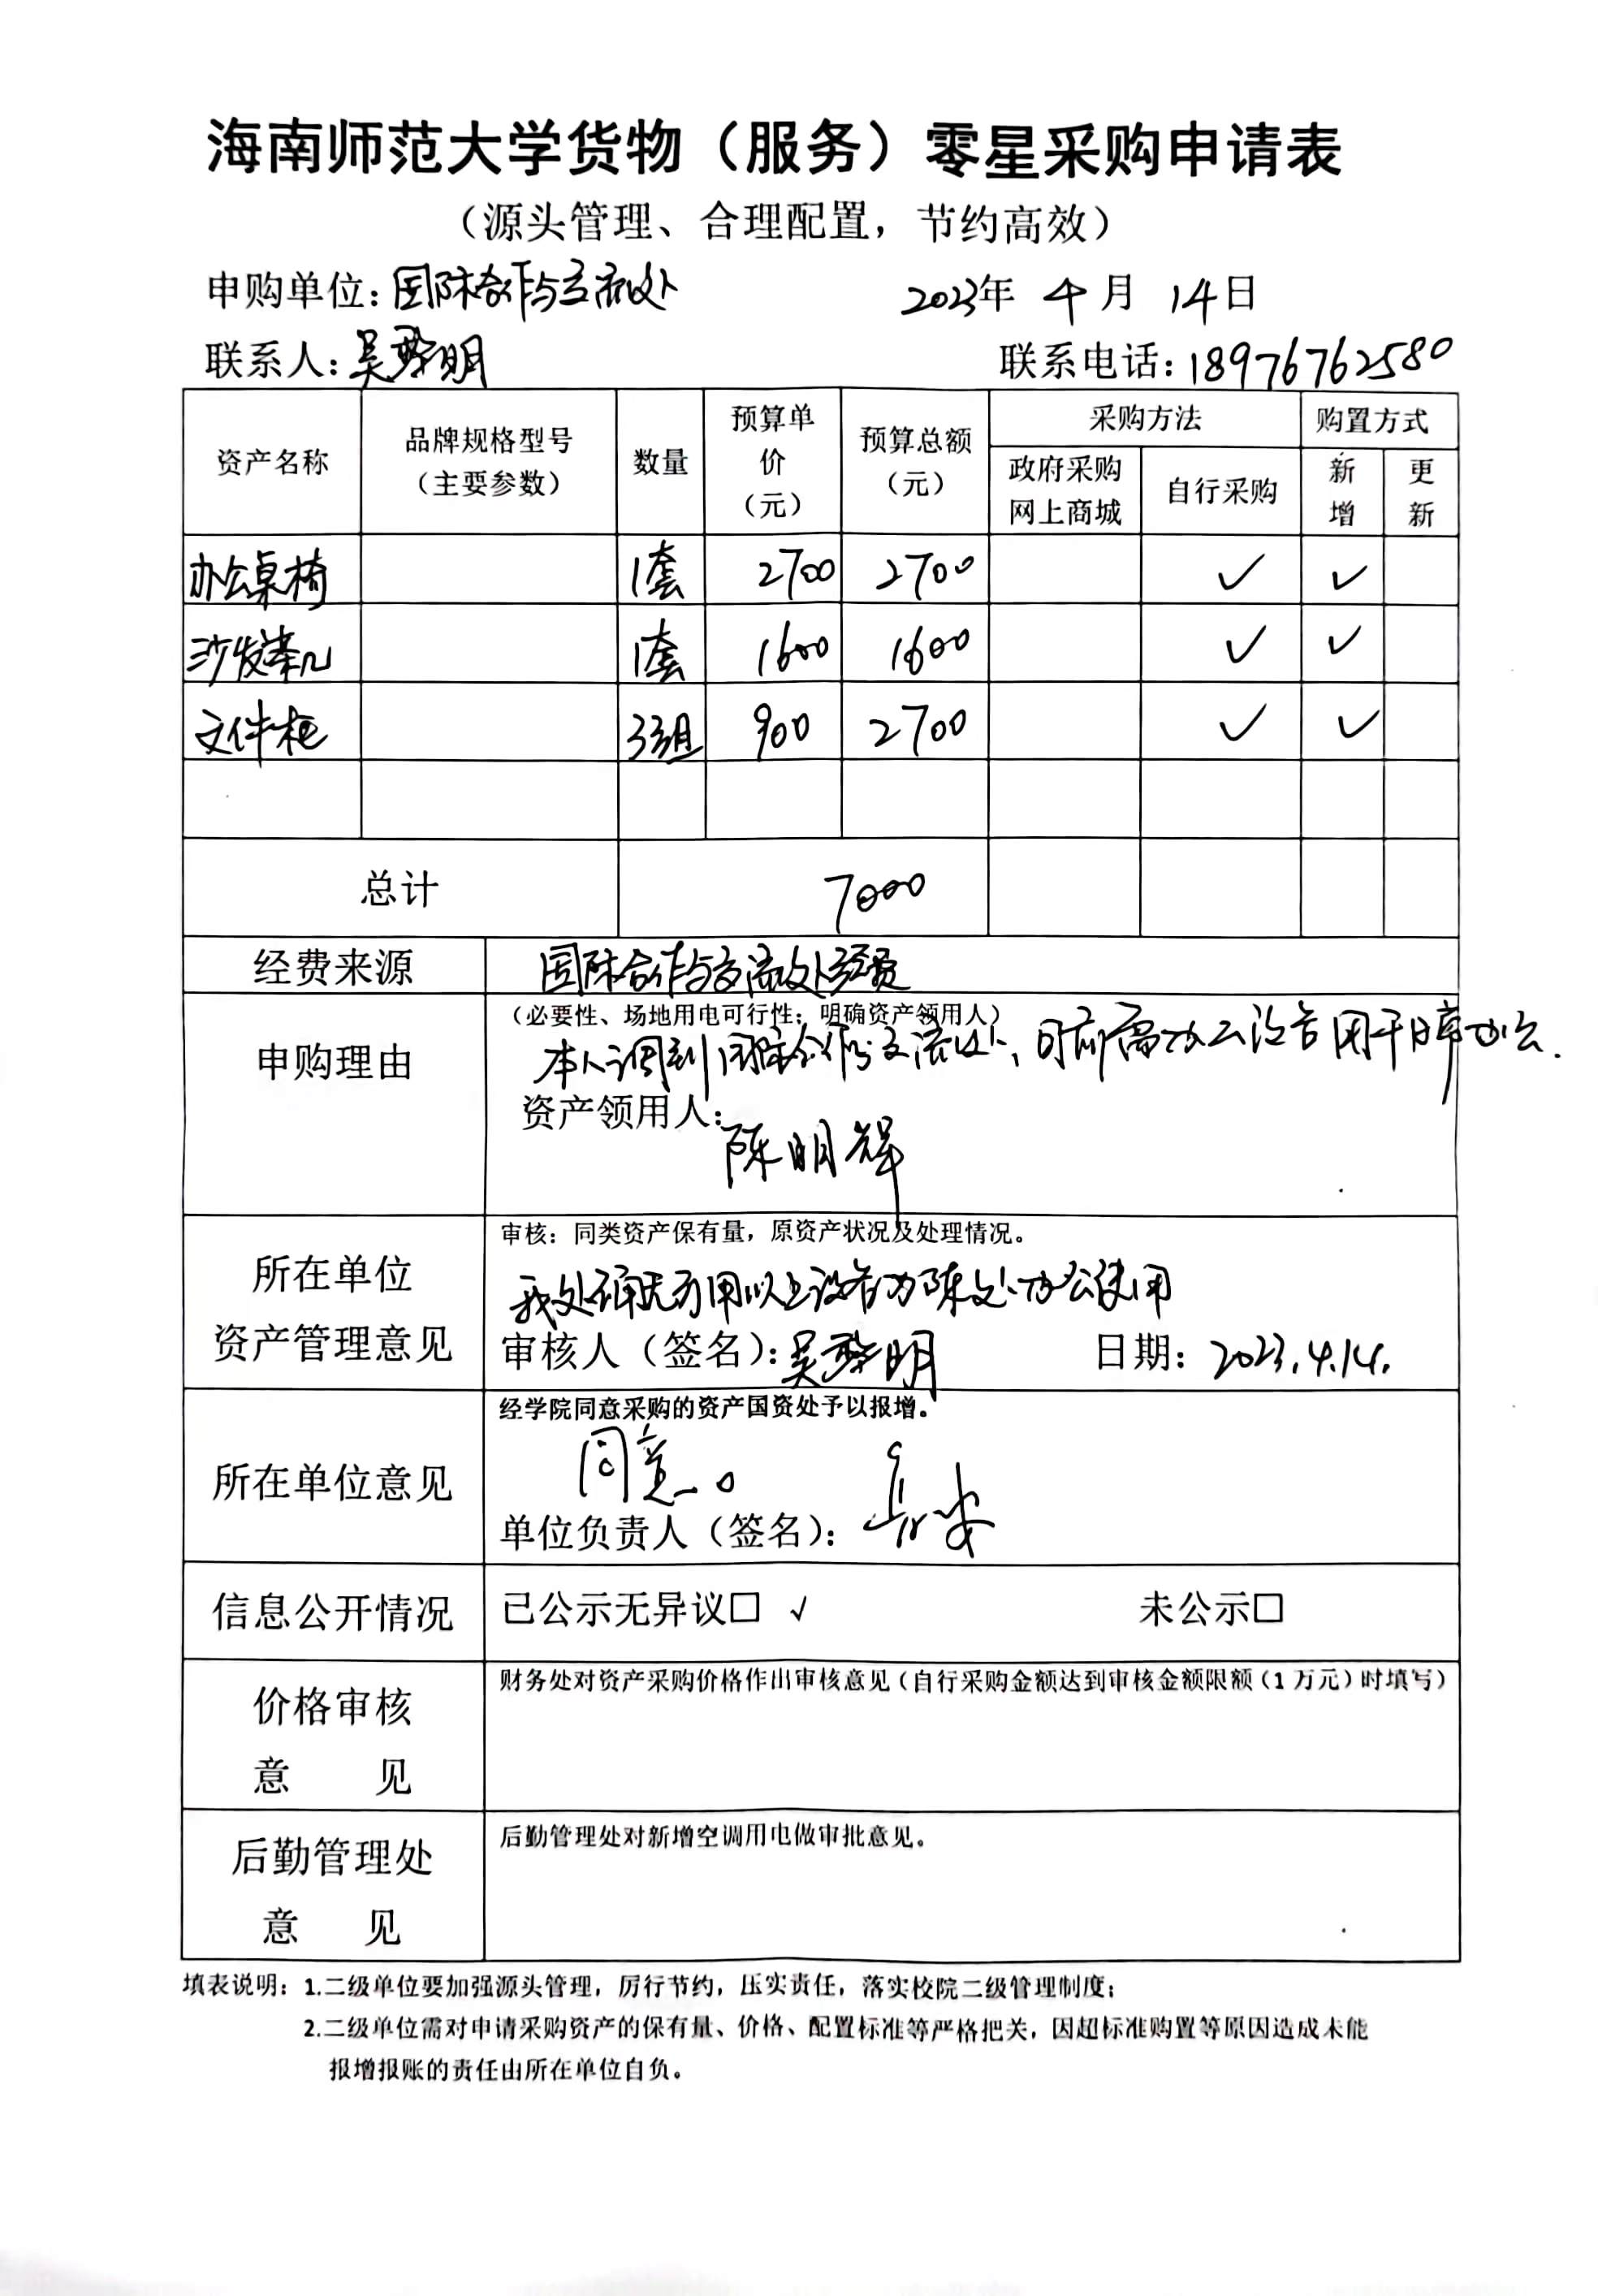 海南师范大学货物（服务）零星采购申请表
（源头管理、合理配置，节约高效）
申购单位：国际合作与交流处 2023年 4月 14日
联系人：吴 明 联系电话：18976762580
资产名称 品牌规格型号（主要参数） 数量 预算单价（元） 预算总额（元） 采购方法 购置方式
政府采购网上商城 自行采购 新增 更新
办公桌椅 1套 2700 2700 ✓ ✓
沙发茶几 1套 1600 1600 ✓ ✓
文件柜 3组 900 2700 ✓ ✓
总计 7000
经费来源 国际合作与交流处经费
申购理由 （必要性、场地用电可行性；明确资产领用人）
本人调到国际合作与交流处，目前需办公设备用于日常办公.
资产领用人：
陈明辉
所在单位资产管理意见 审核：同类资产保有量，原资产状况及处理情况。
我处确无 用以上设备为陈处办公使用
审核人（签名）：吴 明 日期：2023.4.14.
所在单位意见 经学院同意采购的资产国资处予以报增。
同意。
单位负责人（签名）：
信息公开情况 已公示无异议□ √ 未公示□
价格审核意 见 财务处对资产采购价格作出审核意见（自行采购金额达到审核金额限额（1万元）时填写）
后勤管理处意 见 后勤管理处对新增空调用电做审批意见。
填表说明：1.二级单位要加强源头管理，厉行节约，压实责任，落实校院二级管理制度；
2.二级单位需对申请采购资产的保有量、价格、配置标准等严格把关，因超标准购置等原因造成未能
报增报账的责任由所在单位自负。